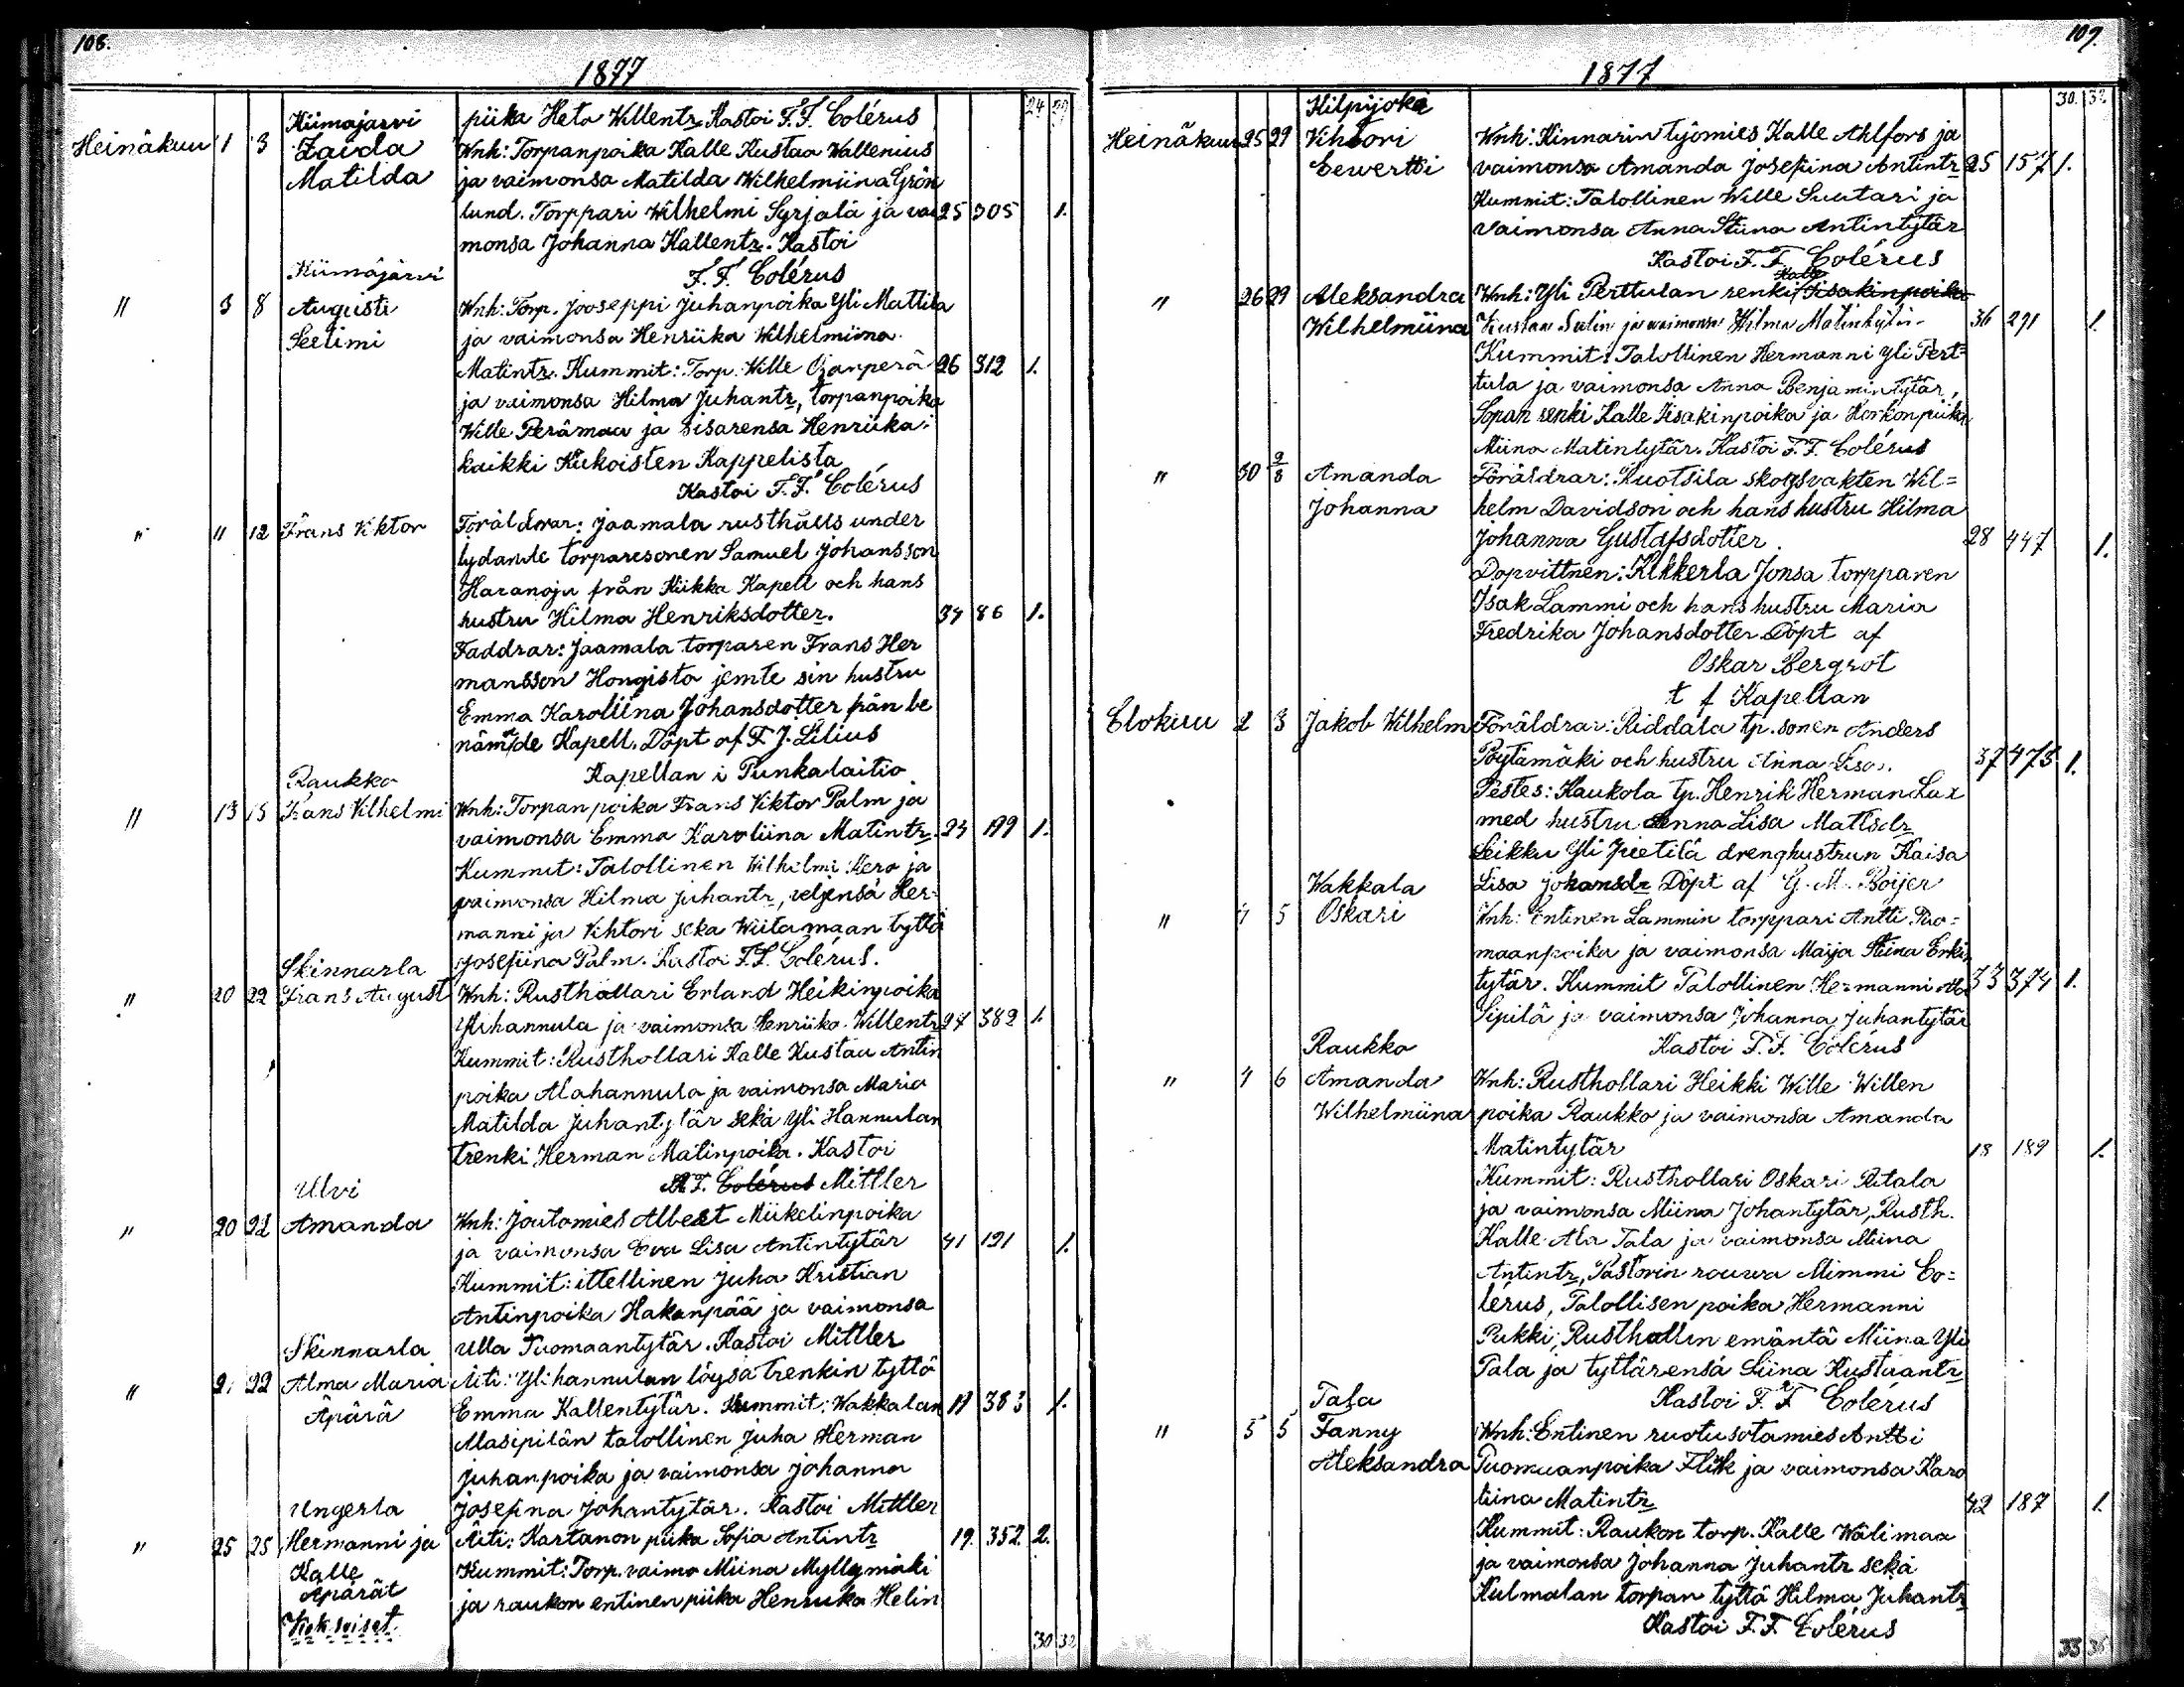 108.
1877
24 29
Kiimajärvi piika Heta Willentr. Kastoi F.F. Colérus
Heinäkuu 1 3 Zaida Wnh: Torpanpoika Kalle Kustaa Wallenius
Matilda ja vaimonsa Matilda Wilhelmiina Grön
lund. Torppari Wilhelmi Syrjälä ja vai 25 305 1.
monsa Johanna Kallentr. Kastoi
Kiimajärvi F.F. Colérus
" 3 8 Augusti Wnh: Torp. Jooseppi Juhanpoika Yli Mattila
Seelimi ja vaimonsa Henriika Wilhelmiina
Matintr. Kummit: Torp. Wille Ojanperä 26 312 1.
ja vaimonsa Hilma Juhantr, torpanpoika
Wille Perämaa ja sisarensa Henriika
kaikki Kiikoisten Kappelista
Kastoi F.F. Colérus
" 11 12 Frans Viktor Föräldrar: Jaamala rusthålls under
lydande torparesonen Samuel Johansson
Haranoja från Kiikka Kapell och hans
hustru Hilma Henriksdotter. 34 86 1.
Faddrar: Jaamala torparen Frans Her
mansson Hongisto jemte sin hustru
Emma Karoliina Johansdotter från be
nämnde Kapell. Döpt af F. J. Lilius
Raukko Kapellan i Punkalaitio
" 13 15 Frans Vilhelmi Wnh: Torpanpoika Frans Viktor Palm ja
vaimonsa Emma Karoliina Matintr. 23 199 1.
Kummit: Talollinen Wilhelmi Kero ja
vaimonsa Hilma Juhantr, veljensä Her-
manni ja Vihtori sekä Wiitamaan tyttö
Skinnarla Josefiina Palm. Kastoi F.F. Colérus.
" 20 22 Frans August Wnh: Rusthollari Erland Heikinpoika
Ylihannula ja vaimonsa Henriika Willentr 27 382 1.
Kummit: Rusthollari Kalle Kustaa Antin
poika Alahannula ja vaimonsa Maria
Matilda Juhantytär sekä Yli Hannulan
trenki Herman Matinpoika. Kastoi
Ulvi F. Colérus Mittler
" 20 22 Amanda Wnh: Joutomies Albert Miikelinpoika
ja vaimonsa Eva Lisa Antintytär 41 121 1.
Kummit: ittellinen Juha Kristian
Antinpoika Hakanpää ja vaimonsa
Skinnarla Ulla Tuomaantytär. Kastoi Mittler
" 21 22 Alma Maria Äiti: Ylihannulan löysä trenkin tyttö
Äpärä Emma Kallentytär. Kummit: Wakkalan 19 383 1.
Masipilän talollinen Juha Herman
Juhanpoika ja vaimonsa Johanna
Ungerla Josefina Johantytär. Kastoi Mittler
" 25 25 Hermanni ja Äiti: Kartanon piika Sofia Antintr 19. 352. 2.
Kalle Kummit: Torp. vaimo Miina Myllymäki
Äpärät ja raukon entinen piika Henriika Helin
Kaksoiset.
30 32
109.
1877
30. 32
Kilpijoki
Heinäkuu 25 29 Vihtori Wnh: Kinnarin työmies Kalle Ahlfors ja
Eewertti vaimonsa Amanda Josefiina Antintr 25 157 1.
Kummit: Talollinen Wille Suutari ja
vaimonsa Anna Stiina Antintytär
Kastoi F.F. Colérus
Kalle
" 26 29 Aleksandra Wnh: Yli Perttulan renki Iisakinpoika
Wilhelmiina Kustaa Sulin ja vaimonsa Hilma Matintytär. 36 291 1.
Kummit: Talollinen Hermanni Yli Pert=
tula ja vaimonsa Anna Benjamintytär,
Sopan renki Kalle Iisakinpoika ja Horkon piika
Miina Matintytär. Kastoi F.F. Colérus
" 30 2/8 Amanda Föräldrar: Kuotsila skogsvakten Wil=
Johanna helm Davidson och hans hustru Hilma
Johanna Gustafsdotter. 28 447 1.
Dopvittnen: Kikkerla Jonsa torpparen
Isak Lammi och hans hustru Maria
Fredrika Johansdotter. Döpt af
Oskar Bergrot
t f Kapellan
Elokuu 2 3 Jakob Wilhelm Föräldrar: Riddala tp. sonen Anders
Pöytämäki och hustru Anna Lisa. 37 473 1.
Testes: Kaukola tp. Henrik Herman Lax
med hustru Anna Lisa Mattsdr
Leikku Yli Pietilä drenghustrun Kaisa
Wakkala Lisa Johansdr Döpt af G. M. Boijer
" 4 5 Oskari Wnh: Entinen Lammin torppari Antti Tuo=
maanpoika ja vaimonsa Maija Stiina Erkin
tytär. Kummit Talollinen Hermanni 33 374 1.
Sipilä ja vaimonsa Johanna Juhantytär
Raukko Kastoi F.F. Colérus
" 4 6 Amanda Wnh: Rusthollari Heikki Wille Willen
Wilhelmiina poika Raukko ja vaimonsa Amanda
Matintytär 18 189 1.
Kummit: Rusthollari Oskari Ritala
ja vaimonsa Miina Johantytär, Rusth.
Kalle Ala Tala ja vaimonsa Miina
Antintr, Pastorin rouwa Mimmi Co=
lérus, Talollisen poika Hermanni
Pukki, Rusthollin emäntä Miina Yli
Tala ja tyttärensä Liina Kustaantr
Tala Kastoi F. F Colérus
" 5 5 Fanny Wnh: Entinen ruotusotamies Antti
Aleksandra Tuomaanpoika Flik ja vaimonsa Karo
liina Matintr 42 187 1.
Kummit: Raukon torp. Kalle Wälimaa
ja vaimonsa Johanna Juhantr sekä
Kulmalan torpan tyttö Hilma Juhantr
Kastoi F.F. Colérus
33 36